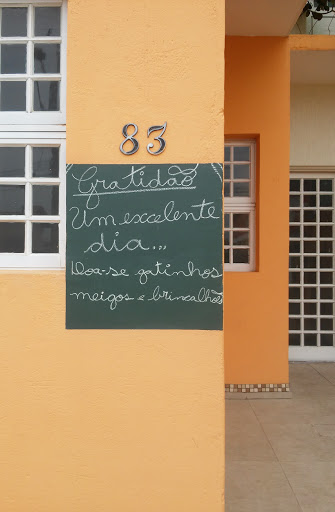 83
Gratidão
Um excelente
dia...
Doa-se gatinhos
meigos e brincalhões